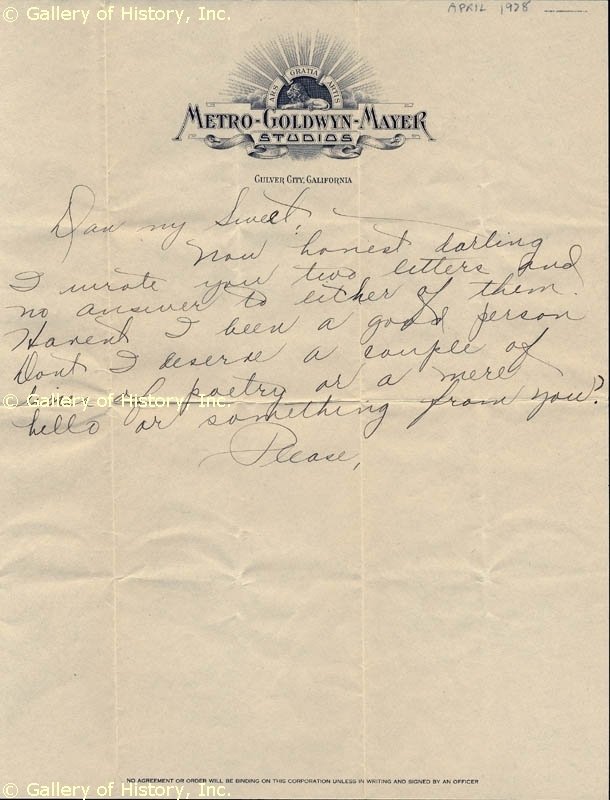 © Gallery of History, Inc.
APRIL 1928
ARS GRATIA ARTIS
METRO-GOLDWYN-MAYER
STUDIOS
CULVER CITY, CALIFORNIA
Dan my Sweet!
Now honest darling
I wrote you two letters and
no answer to either of them.
Havent I been a good person
Dont I deserve a couple of
of poetry or a mere
© Gallery of History, Inc.
hello or something from you?
Please,
NO AGREEMENT OR ORDER WILL BE BINDING ON THIS CORPORATION UNLESS IN WRITING AND SIGNED BY AN OFFICER
© Gallery of History, Inc.